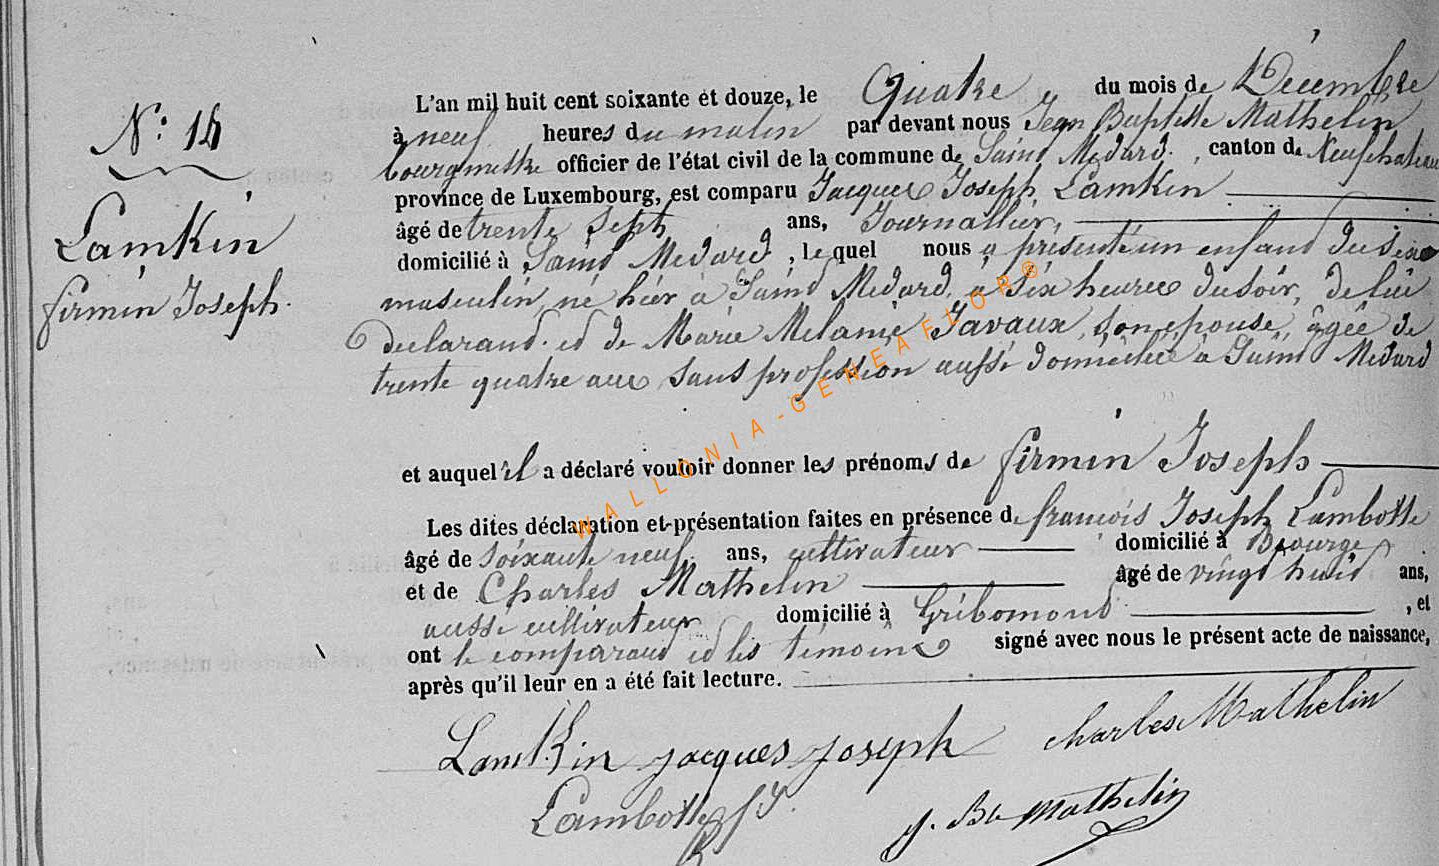 N.° 15
Lamkin
firmin Joseph.
L'an mil huit cent soixante et douze, le Quatre du mois de Décembre
à neuf heures du matin par devant nous Jean Baptiste Mathelin
bourgmestre officier de l'état civil de la commune de Saint Médard, canton de Neufchateau
province de Luxembourg, est comparu Jacques Joseph Lamkin
âgé de trente sept ans, Journallier,
domicilié à Saint Medard, lequel nous a présenté un enfant du sexe
masculin, né hier à Saint Medard, à six heures du soir, de lui
declarant et de Marie Melanie Javaux, son epouse, âgée de
trente quatre ans, sans profession aussi domiciliée à Saint Medard
et auquel il a déclaré vouloir donner les prénoms de firmin Joseph
Les dites déclaration et présentation faites en présence de francois Joseph Lambotte
âgé de soixante neuf ans, cultivateur domicilié à
et de Charles Mathelin âgé de vingt huit ans,
aussi cultivateur domicilié à Gribomont, et
ont le comparant et les témoins signé avec nous le présent acte de naissance,
après qu'il leur en a été fait lecture.
Lamkin jacques joseph charles Mathelin
Lambotte fs J.
J. Bte Mathelin
WALLONIA-GENEAFLOR®